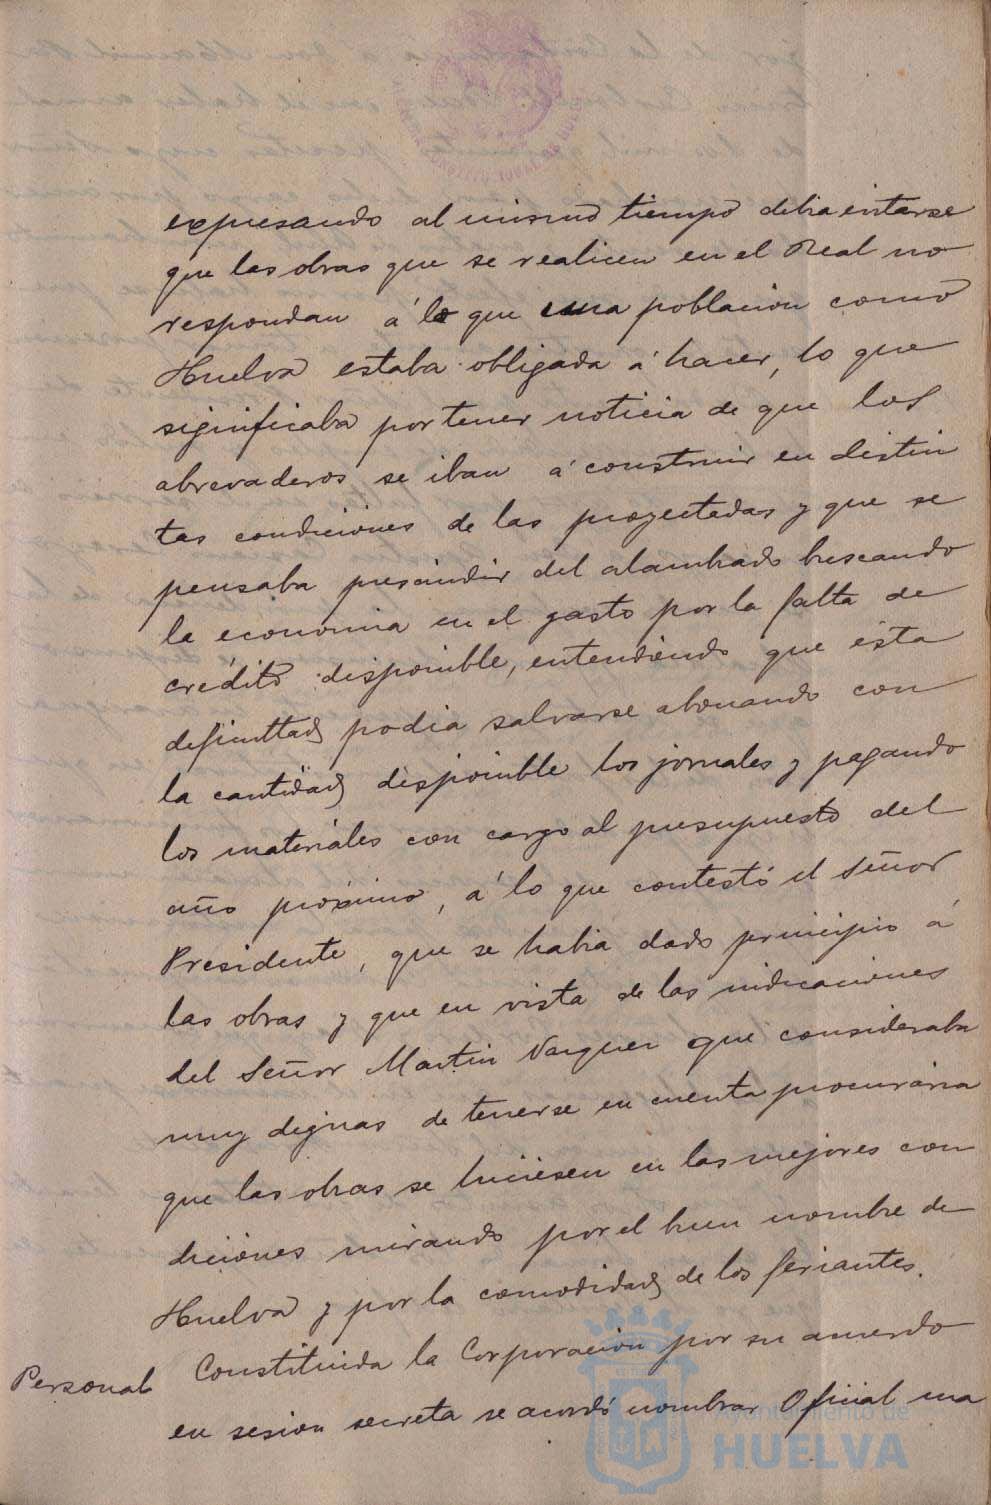 expresando al mismo tiempo debia evitarse
que las obras que se realicen en el Real no
respondan á lo que una poblacion como
Huelva estaba obligada á hacer, lo que
significaba por tener noticia de que los
abrevaderos se iban á construir en distin
tas condiciones de las proyectadas y que se
pensaba prescindir del alambrado buscando
la economia en el gasto por la falta de
crédito disponible, entendiendo que ésta
dificultad podia salvarse abonando con
la cantidad disponible los jornales y pagando
los materiales con cargo al presupuesto del
año próximo, á lo que contestó el Señor
Presidente, que se habia dado principio á
las obras y que en vista de las indicaciones
del Señor Martin Vazquez que consideraba
muy dignas de tenerse en cuenta procuraria
que las obras se hiciesen en las mejores con
diciones mirando por el buen nombre de
Huelva y por la comodidad de los feriantes.
Personal Constituida la Corporacion por su acuerdo
en sesion secreta se acordó nombrar Oficial ma
Ayuntamiento de
HUELVA